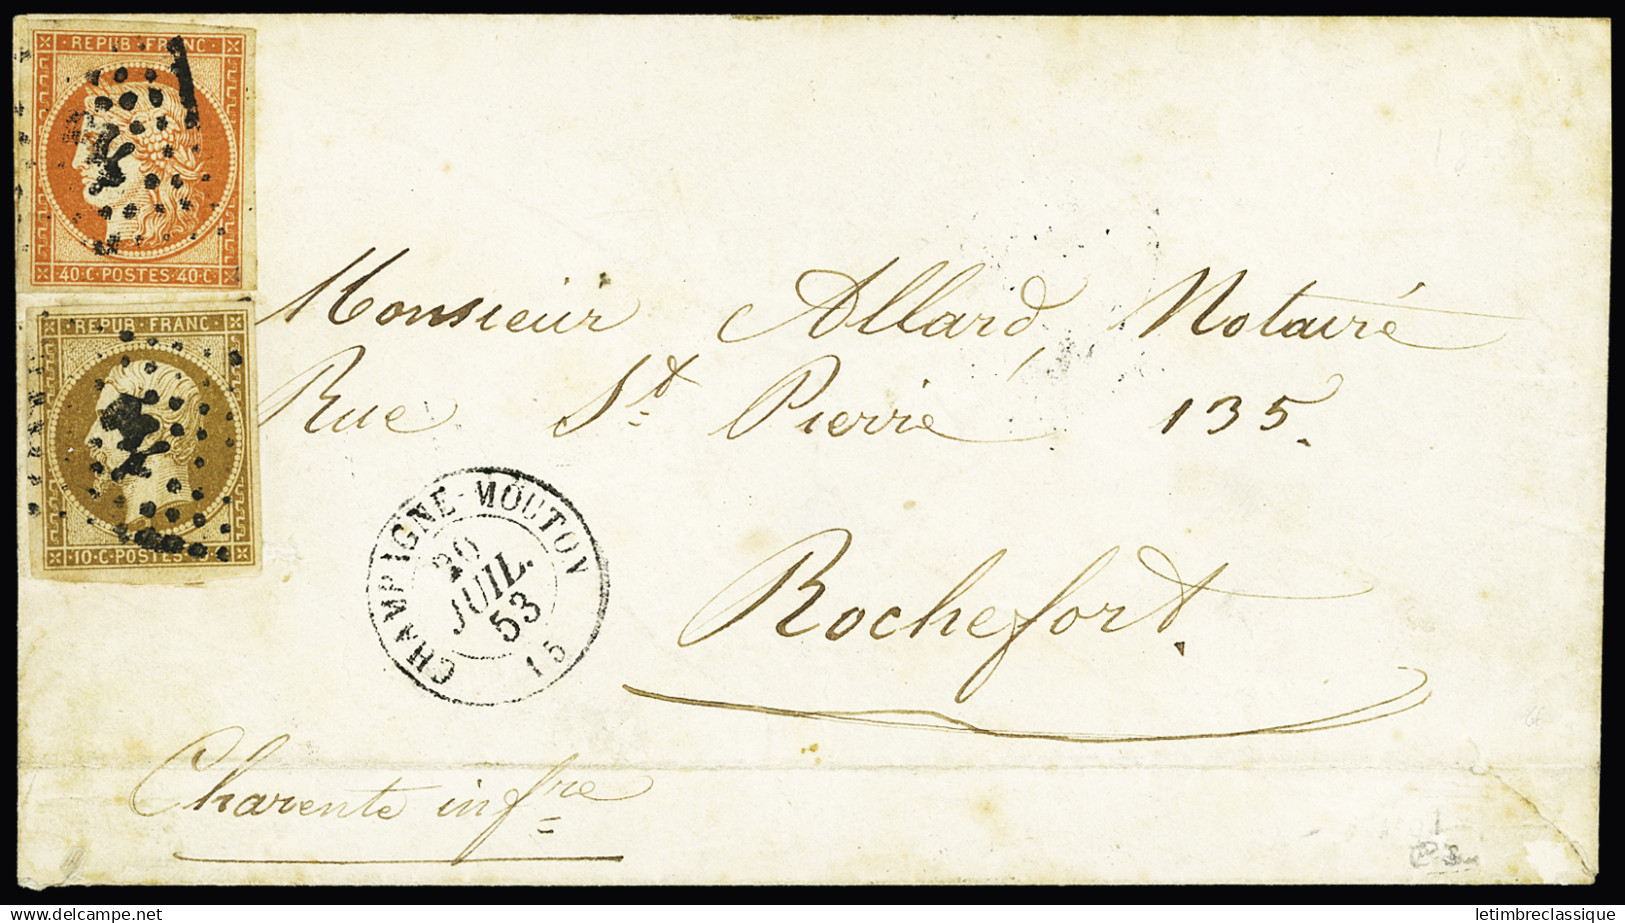 REPUB·FRANC·
40·C·POSTES·40·C·
REPUB·FRANC·
10·C·POSTES
Monsieur Allard, Notaire
Rue St Pierre 135.
CHAMPAGNE-MOUTON
20
JUIL.
53
15
Rochefort.
Charente infre
letimbreclassique